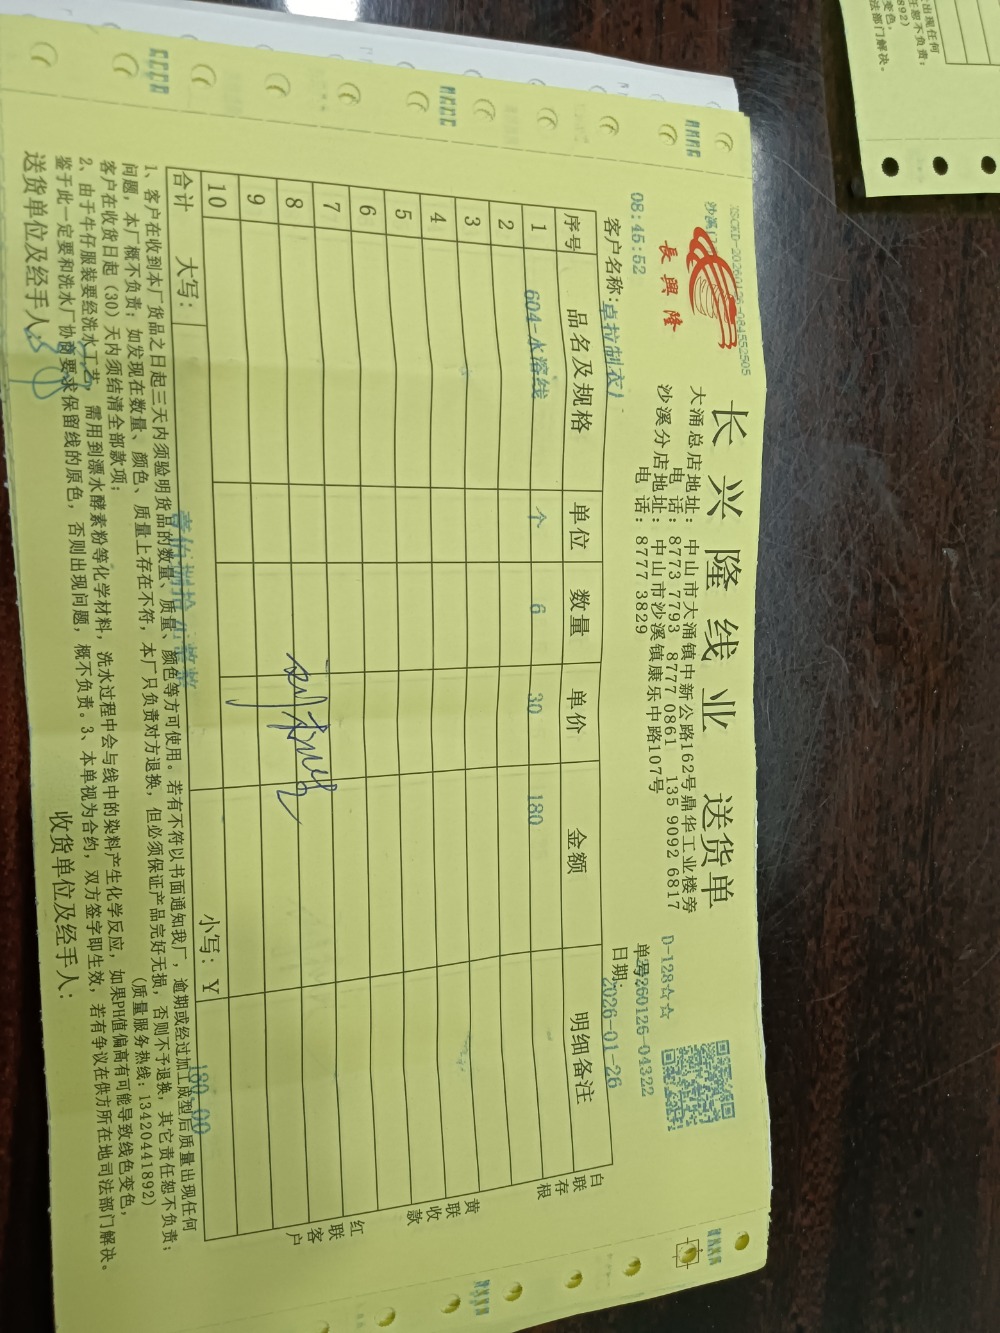 长兴隆线业 送货单
長興隆
大涌总店地址：中山市大涌镇中新公路162号鼎华工业楼旁
电话：8773 7793 8777 0861 135 9092 6817
沙溪分店地址：中山市沙溪镇康乐中路107号
电话：8777 3829
D-128☆☆
08:45:52
单号
260126-04322
客户名称：卓拉制衣
日期：2026-01-26
序号 品名及规格 单位 数量 单价 金额 明细备注
1 604-水溶线 个 6 30 180
2
3
4
5
6
7
8
9
10
合计 大写： 小写：Y 180.00
白联存根
黄联收款
红联客户
1、客户在收到本厂货品之日起三天内须验明货品的数量、质量、颜色等方可使用。若有不符以书面通知我厂，逾期或经过加工成型后质量出现任何
问题，本厂概不负责；如发现在数量、颜色、质量上存在不符，本厂只负责对方退换，但必须保证产品完好无损，否则不予退换，其它责任恕不负责；
客户在收货日起（30）天内须结清全部款项； （质量服务热线：13420441892）
2、由于牛仔服装要经洗水工艺，需用到漂水酵素粉等化学材料，洗水过程中会与线中的染料产生化学反应，如果PH值偏高有可能导致线色变色，
鉴于此一定要和洗水厂协商要求保留线的原色，否则出现问题，概不负责。3、本单视为合约，双方签字即生效，若有争议在供方所在地司法部门解决。
送货单位及经手人： 收货单位及经手人：
出现任何
任恕不负责；
892)
变色，
法部门解决。